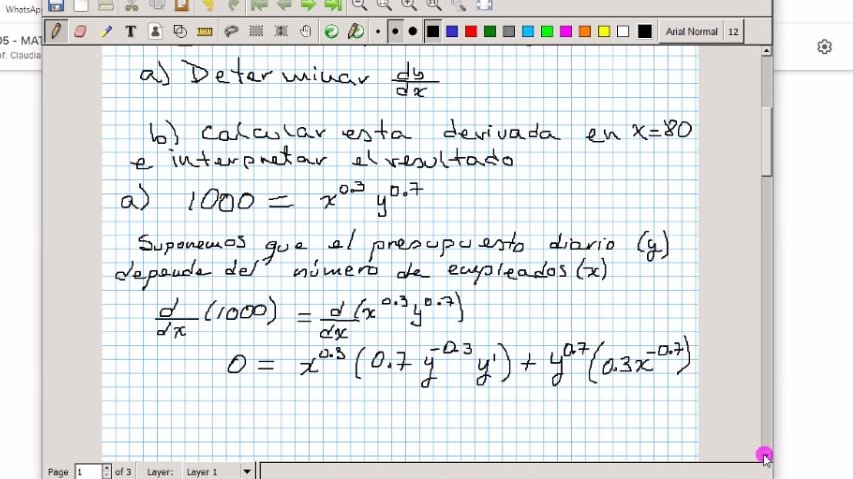 WhatsApp
05 - MAT
of. Claudia
Arial Normal 12
a) Determinar dy/dx
b) Calcular esta derivada en x=80
e interpretar el resultado
a) 1000 = x^0.3 y^0.7
Suponemos que el presupuesto diario (y)
depende del número de empleados (x)
d/dx (1000) = d/dx (x^0.3 y^0.7)
0 = x^0.3 (0.7 y^-0.3 y') + y^0.7 (0.3x^-0.7)
Page 1 of 3 Layer: Layer 1